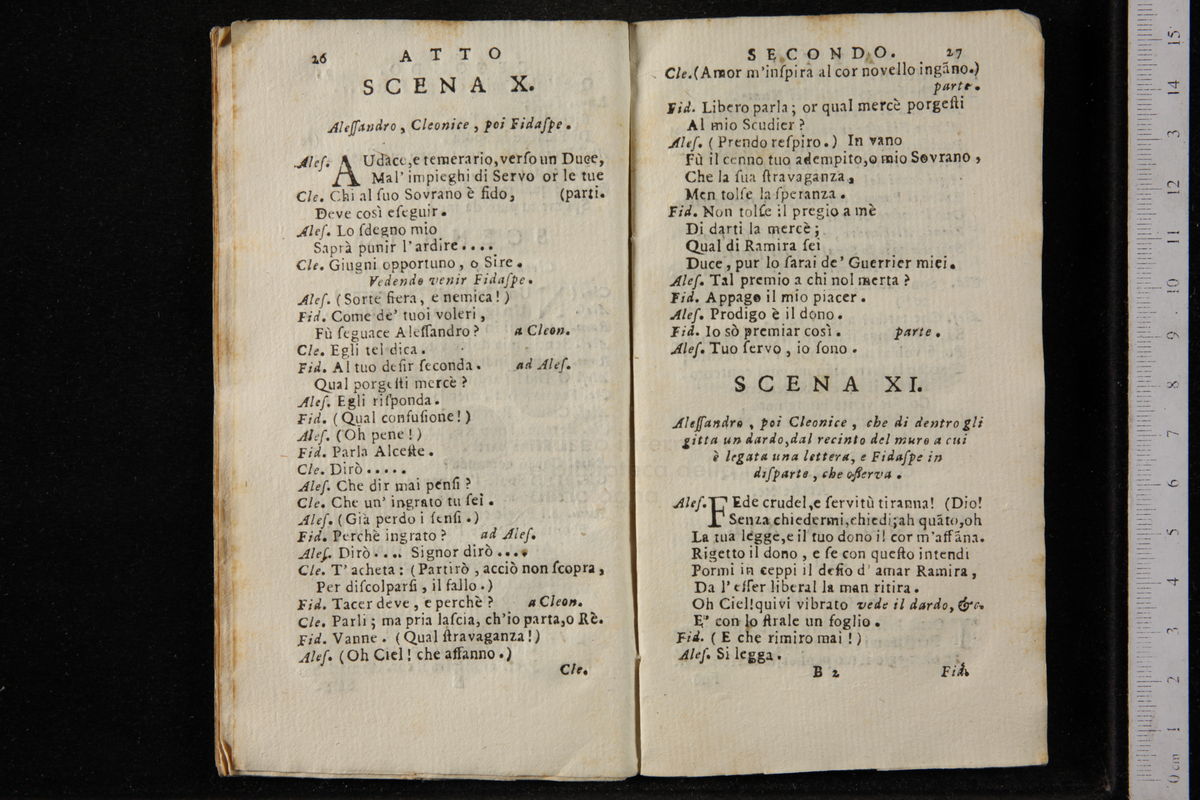 26 ATTO
SCENA X.
Aleſſandro, Cleonice, poi Fidaſpe.
Aleſ. AUdace, e temerario, verſo un Duce,
Mal' impieghi di Servo or le tue
Cle. Chi al ſuo Sovrano è fido, (parti.
Deve così eſeguir.
Aleſ. Lo ſdegno mio
Saprà punir l'ardire....
Cle. Giugni opportuno, o Sire.
Vedendo venir Fidaſpe.
Aleſ. (Sorte fiera, e nemica!)
Fid. Come de' tuoi voleri,
Fù ſeguace Aleſſandro? a Cleon.
Cle. Egli tel dica.
Fid. Al tuo deſir ſeconda. ad Aleſ.
Qual porgeſti mercè?
Aleſ. Egli riſponda.
Fid. (Qual confuſione!)
Aleſ. (Oh pene!)
Fid. Parla Alceſte.
Cle. Dirò.....
Aleſ. Che dir mai penſi?
Cle. Che un' ingrato tu ſei.
Aleſ. (Già perdo i ſenſi.)
Fid. Perchè ingrato? ad Aleſ.
Aleſ. Dirò.... Signor dirò....
Cle. T' acheta: (Partirò, acciò non ſcopra,
Per diſcolparſi, il fallo.)
Fid. Tacer deve, e perchè? a Cleon.
Cle. Parli; ma pria laſcia, ch'io parta, o Rè.
Fid. Vanne. (Qual ſtravaganza!)
Aleſ. (Oh Ciel! che affanno.)
Cle.
SECONDO. 27
Cle. (Amor m'inſpira al cor novello ingãno.)
parte.
Fid. Libero parla; or qual mercè porgeſti
Al mio Scudier?
Aleſ. (Prendo reſpiro.) In vano
Fù il cenno tuo adempito, o mio Sovrano,
Che la ſua ſtravaganza,
Men tolſe la ſperanza.
Fid. Non tolſe il pregio a mè
Di darti la mercè;
Qual di Ramira ſei
Duce, pur lo ſarai de' Guerrier miei.
Aleſ. Tal premio a chi nol merta?
Fid. Appago il mio piacer.
Aleſ. Prodigo è il dono.
Fid. Io sò premiar così. parte.
Aleſ. Tuo ſervo, io ſono.
SCENA XI.
Aleſſandro, poi Cleonice, che di dentro gli
gitta un dardo, dal recinto del muro a cui
è legata una lettera, e Fidaſpe in
diſparte, che oſſerva.
Aleſ. FEde crudel, e ſervitù tiranna! (Dio!
Senza chiedermi, chiedi; ah quãto, oh
La tua legge, e il tuo dono il cor m'affãna.
Rigetto il dono, e ſe con queſto intendi
Pormi in ceppi il deſio d' amar Ramira,
Da l' eſſer liberal la man ritira.
Oh Ciel! quivi vibrato vede il dardo, &c.
E' con lo ſtrale un foglio.
Fid. (E che rimiro mai!)
Aleſ. Si legga.
B 2 Fid.